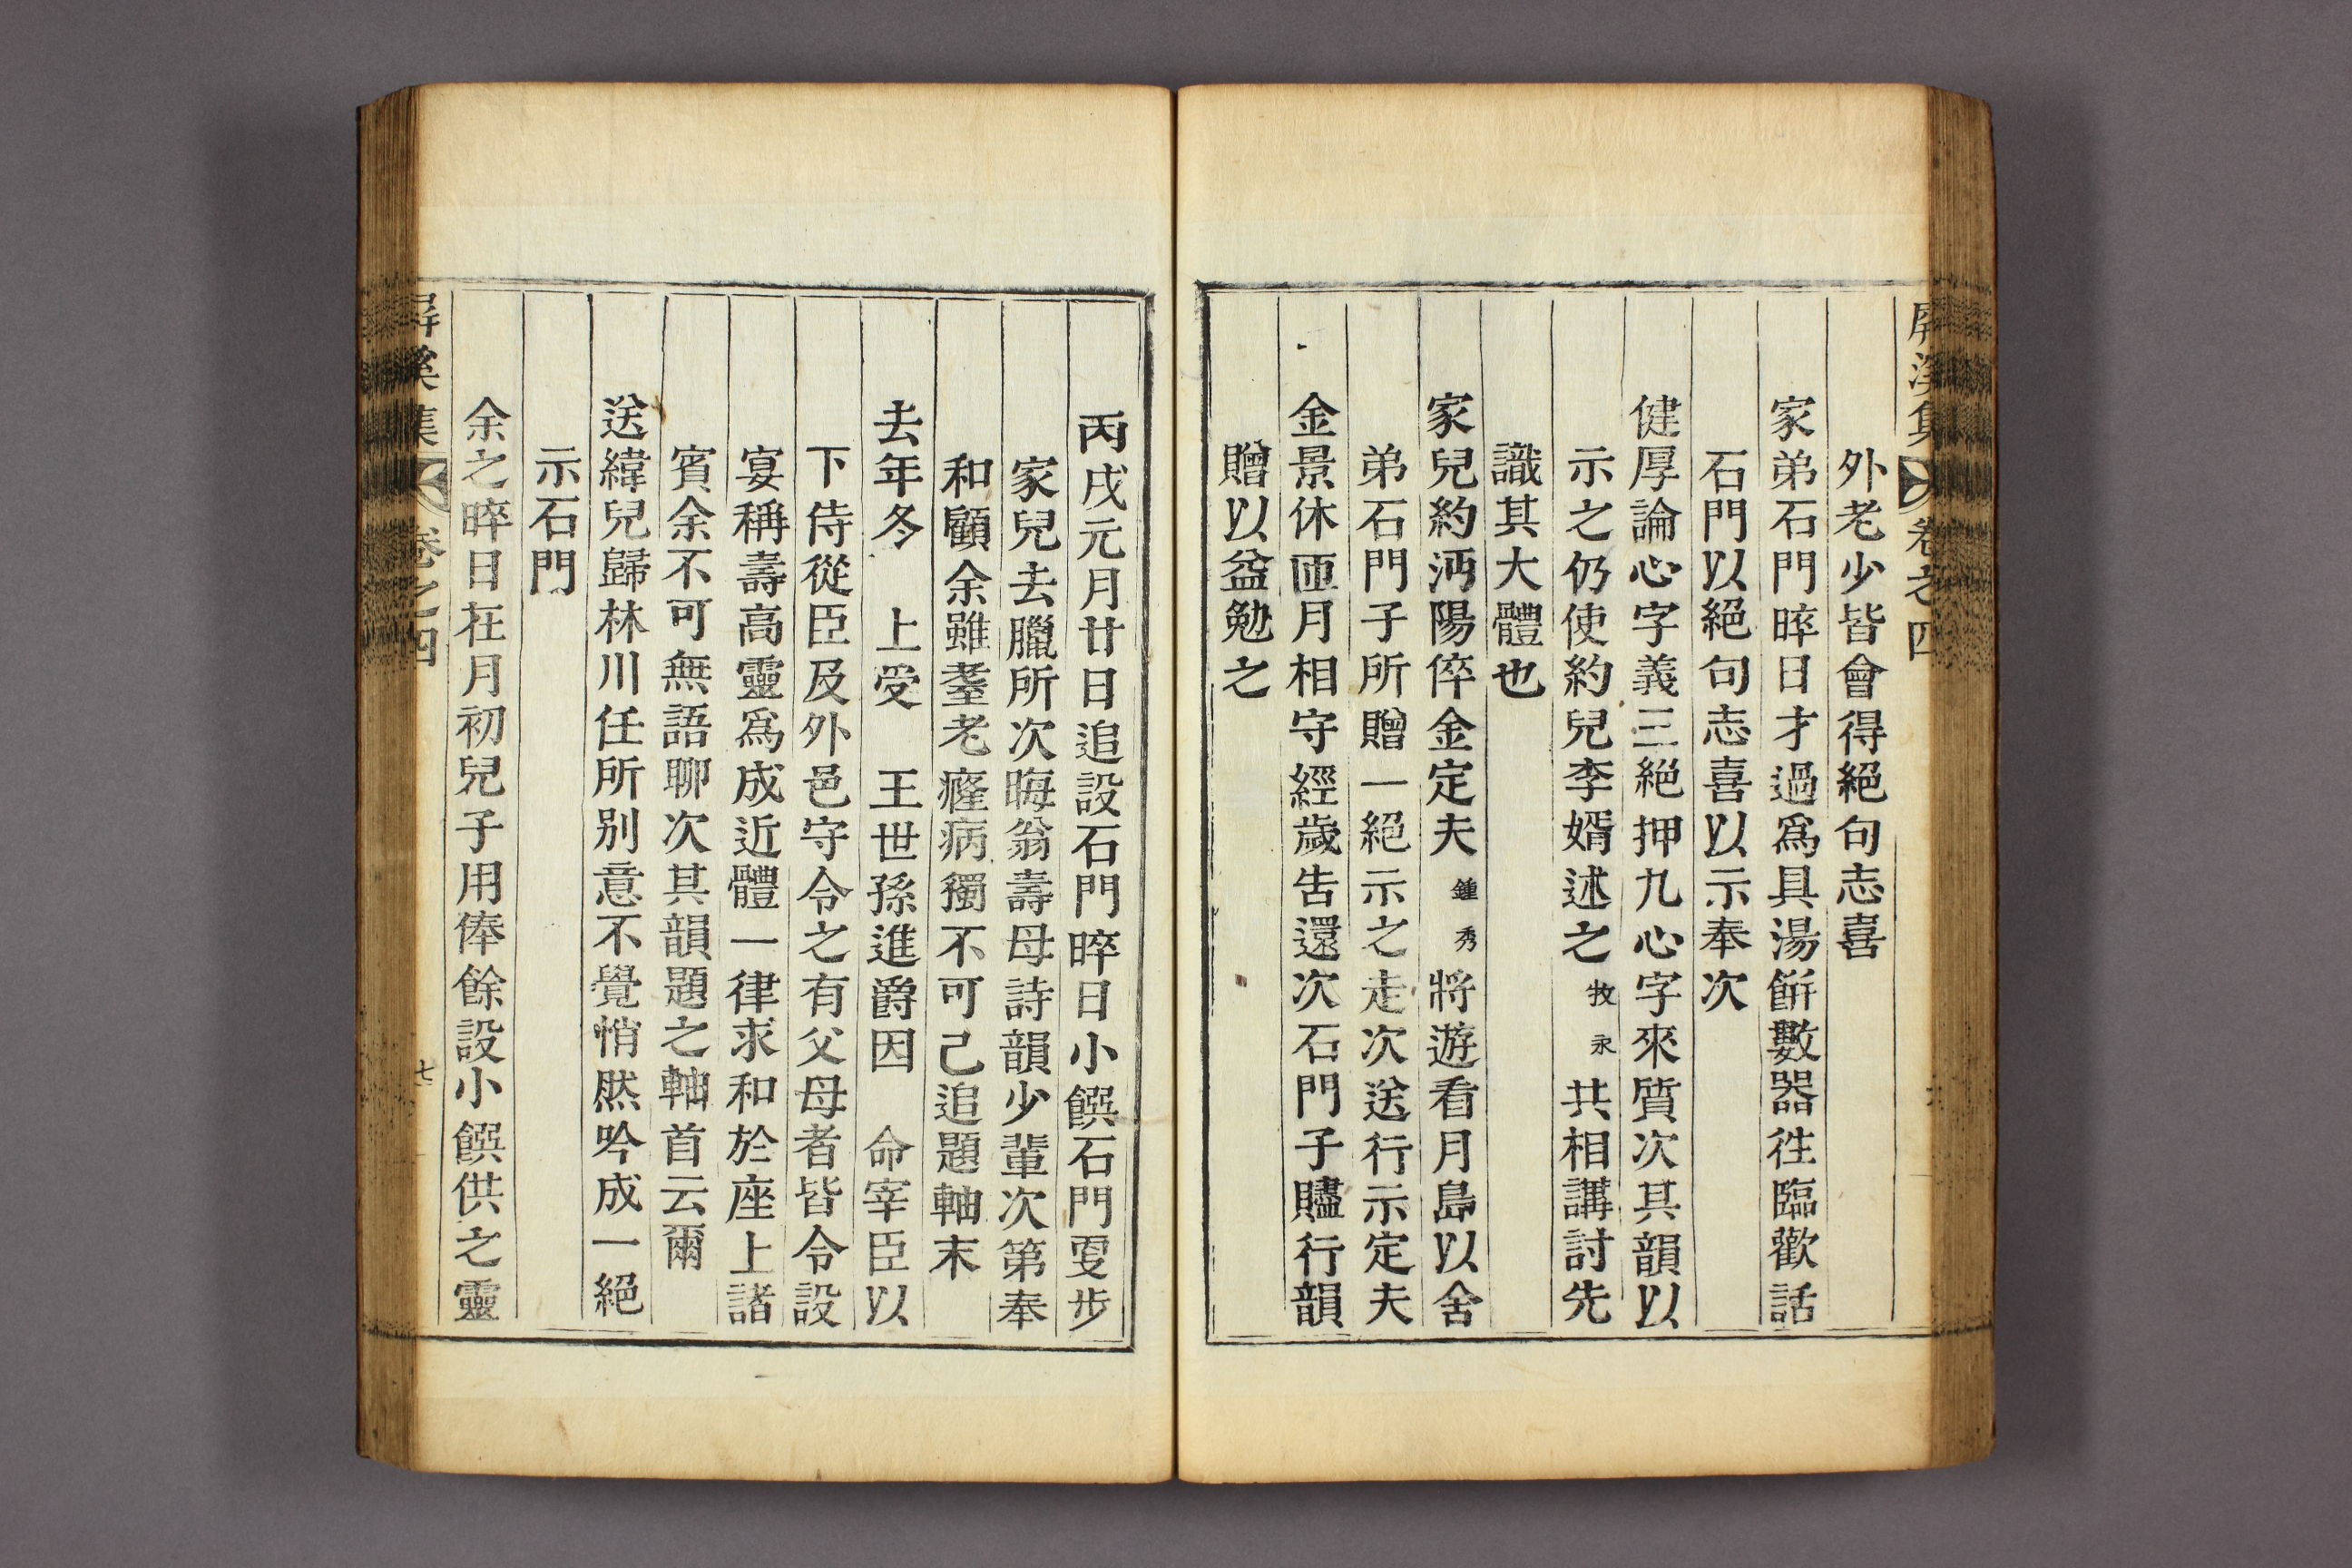 屛溪集 卷之四
外老少皆會得絕句志喜
家弟石門晬日才過爲具湯餠數器徃臨歡話
石門以絕句志喜以示奉次
健厚論心字義三絕押九心字來質次其韻以
示之仍使約兒李婿述之牧永共相講討先
識其大體也
家兒約沔陽倅金定夫鍾秀將遊看月島以舍
弟石門子所贈一絕示之走次送行示定夫
金景休匝月相守經歲告還次石門子贐行韻
贈以益勉之
丙戌元月廿日追設石門晬日小饌石門更步
家兒去臘所次晦翁壽母詩韻少輩次第奉
和顧余雖耋老癃病獨不可己追題軸末
去年冬 上受 王世孫進爵因 命宰臣以
下侍從臣及外邑守令之有父母者皆令設
宴稱壽高靈爲成近體一律求和於座上諸
賓余不可無語聊次其韻題之軸首云爾
送緯兒歸林川任所別意不覺悄然吟成一絕
示石門
余之晬日在月初兒子用俸餘設小饌供之靈
屛溪集 卷之四 七